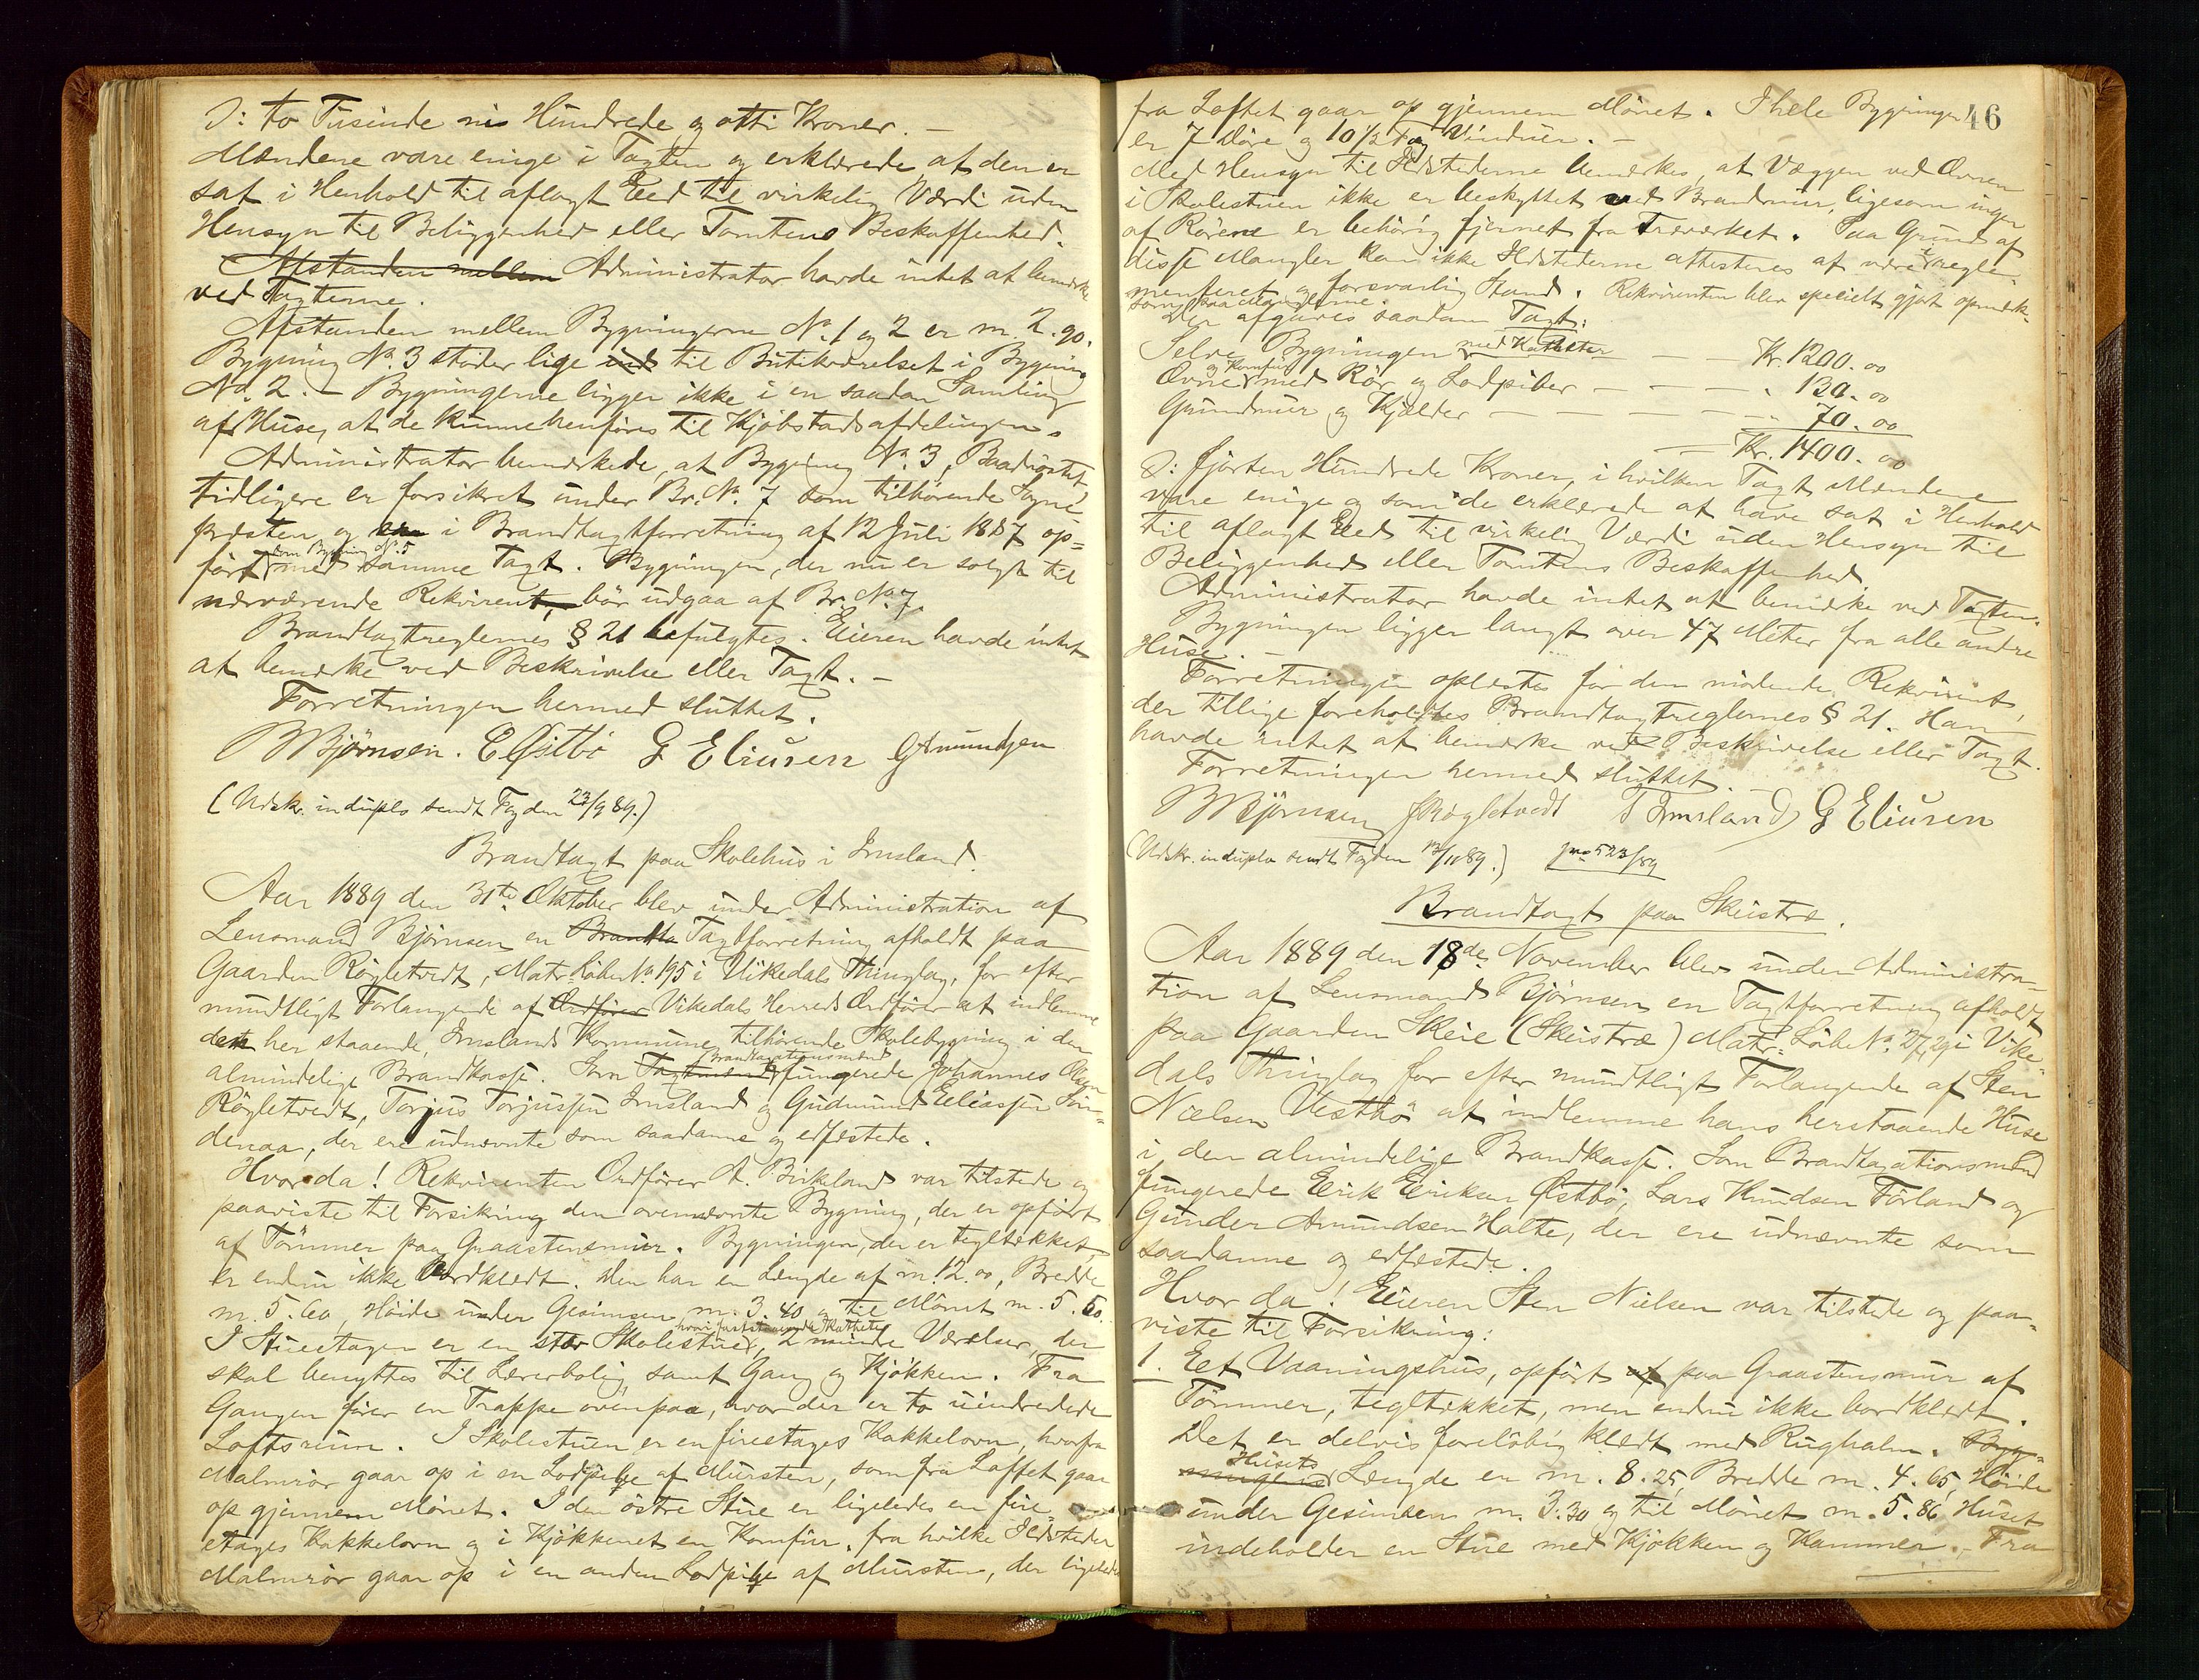 ɔ: to Tusinde ni Hundrede og otti Kroner. –
Mændene vare enige i Taxten og erklærede, at den er
sat i Henhold til aflagt Eed til virkelig Værdi uden
Hensyn til Beliggenhed eller Tomtens Beskaffenhed.
Afstanden mellem Administrator havde intet at bemærke
ved Taxterne.
Afstanden mellem Bygningerne No. 1 og 2 er m. 2.90.
Bygning No. 3 støder lige ind til Butikværelset i Bygning
No. 2. – Bygningerne ligger ikke i en saadan Samling
af Huse, at de kunne henføres til Kjøbstadsafdelingen.
Administrator bemærkede, at Bygning No. 3, Baadnøstet,
tidligere er forsikret under Br. No. 7 som tilhørende Sogne-
præsten og i Brandtaxtforretning af 12 Juli 1887 op-
ført som Bygning No. 5 med samme Taxt. Bygningen, der nu er solgt til
nærværende Rekvirent, bør udgaa af Br. No. 7.
Brandtaxtreglernes § 21 befulgtes. Eieren havde intet
at bemærke ved Beskrivelse eller Taxt. –
Forretningen hermed sluttet.
B Bjørnsen. E Østbö G Eliusen G Amundsen
(Udskr. in duplo sendt Fogden 23/9 89.)
Brandtaxt paa Skolehus i Imsland.
Aar 1889 den 31te Oktober blev under Administration af
Lensmand Bjørnsen en Brandta Taxtforretning afholdt paa
Gaarden Røgletvedt, Matr. Løbe No. 195 i Vikedals Thinglag, for efter
mundtligt Forlangende af Ordfører Vikedals Herreds Ordfører at indlemme
den her staaende, Imslands Kommune tilhørende Skolebygning i den
almindelige Brandkasse. Som Taxtmænd Brandtaxationsmænd fungerede Johannes
Røgletvedt, Torjus Torjussen Imsland og Gudmund Eeliassen Søn-
denaa, der ere udnævnte som saadanne og edfæstede.
Hvor da! Rekvirenten Ordfører A. Birkeland var tilstede og
paaviste til Forsikring den ovennævnte Bygning, der er opført
af Tømmer paa Graastensmur. Bygningen, der er tegltækket,
er endnu ikke bordklædt. Den har en Længde af m. 12.00, Bredde
m. 5.60, Høide under Gesimsen m. 3.40 og til Mønet m. 5.60.
I Stueetagen er en stor Skolestue, hvori faststaaende Katheter, 2 mindre Værelser, der
skal benyttes til Lærerbolig, samt Gang og Kjøkken. Fra
Gangen fører en Trappe ovenpaa, hvor der er to uindredede
Loftsrum. I Skolestuen er en fireetages Kakkelovn, hvorfra
Malmrør gaar op i en Lodpibe af Mursten, som fra Loftet gaar
op gjennem Mønet. I den østre Stue er ligeledes en fire-
etages Kakkelovn og i Kjøkkenet en Komfur, fra hvilke Ildsteder
Malmrør gaar op i en anden Lodpibe af Mursten, der ligeledes
46
fra Loftet gaar op gjennem Mønet. I hele Bygningen
er 7 Døre og 10 1/2 Fag Vinduer. –
Med Hensyn til Ildstederne bemærkes, at Væggen ved Ovnen
i Skolestuen ikke er beskyttet ved Brandmur, ligesom ingen
af Rørene er behørig fjernet fra Træværket. Paa Grund af
disse Mangler kan ikke Ildstederne attesteres at være i regle-
menteret og forsvarlig Stand. Rekvirenten blev specielt gjort opmærk-
som paa Manglerne.
Der afgaves saadan Taxt:
Selve Bygningen med Katheter – Kr. 1200.00
Ovne og Komfur med Rør og Lodpiber – – – – „ 130.00
Grundmur og Kjælder – – – – – „ 70.00
– Kr. 1400.00
ɔ: fjorten Hundrede Kroner, i hvilken Taxt Mændene
vare enige og som de erklærede at have sat i Henhold
til aflagt Eed til virkelig Værdi uden Hensyn til
Beliggenhed eller Tomtens Beskaffenhed.
Administrator havde intet at bemærke ved Taxten.
Bygningen ligger langt over 47 Meter fra alle andre
Huse. –
Forretningen oplæstes for den mødende Rekvirent,
der tillige foreholdtes Brandtaxtreglernes § 21. Han
havde intet at bemærke ved Beskrivelse eller Taxt.
Forretningen hermed sluttet.
B Bjørnsen J Røgletvedt T Imsland G Eliusen
(Udskr. in duplo sendt Fogden 12/11 89.) jno 523/89
Brandtaxt paa Skeistræ.
Aar 1889 den 18de November blev under Administra-
tion af Lensmand Bjørnsen en Taxtforretning afholdt
paa Gaarden Skeie (Skeistræ) Matr. Løbe No. 27, 29 i Vike-
dals Thinglag for efter mundtligt Forlangende af Sten
Nielsen Vestbö at indlemme hans herstaaende Huse
i den almindelige Brandkasse. Som Brandtaxationsmænd
fungerede Eerik Eeriksen Østbö, Lars Knudsen Förland og
Gunder Amundsen Halte, der ere udnævnte som
saadanne og edfæstede.
Hvor da! Eieren Sten Nielsen var tilstede og paa-
viste til Forsikring:
1. Eet Vaaningshus, opført af paa Graastensmur af
Tømmer, tegltækket, men endnu ikke bordklædt.
Det er delvis foreløbig klædt med Rughalm. Byg-
ningens Husets Længde er m. 8.25, Bredde m. 4.65, Høide
under Gesimsen m. 3.30 og til Mønet m. 5.86. Huset
indeholder en Stue med Kjøkken og Kammer. – Fra